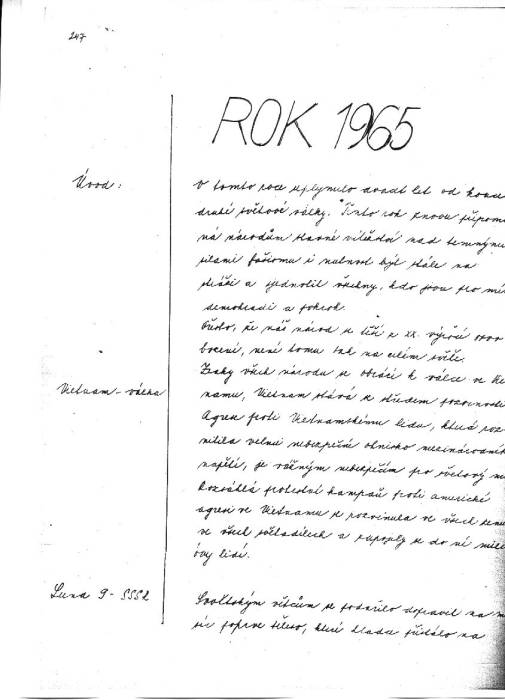 247
ROK 1965
Úvod:
V tomto roce uplynulo dvacet let od konce
druhé světové války. Tento rok znovu připomí
ná národům slavné vítězství nad temnými
silami fašismu i nutnost být stále na
stráži a sjednotit všechny, kdo jsou pro mír
demokracii a pokrok.
že náš národ se těší z XX. výročí osvo
bození, není tomu tak na celém světě.
Vietnam - válka
Zraky všech národů se obrací k válce ve Viet
namu, Vietnam stává se středem pozornosti
Agrese proti Vietnamskému lidu, která roz
nítila velmi nebezpečné ohnisko mezinárodního
napětí, je vážným nebezpečím pro světový mír
Rozsáhlá protestní kampaň proti americké
agresi ve Vietnamu se rozvinula ve všech zemí
ve všech světadílech a zapojily se do ní mili
óny lidí.
Luna 9 - SSSR
Sovětským vědcům se podařilo dopravit na mě
síc poprve těleso, které hladce přistálo na